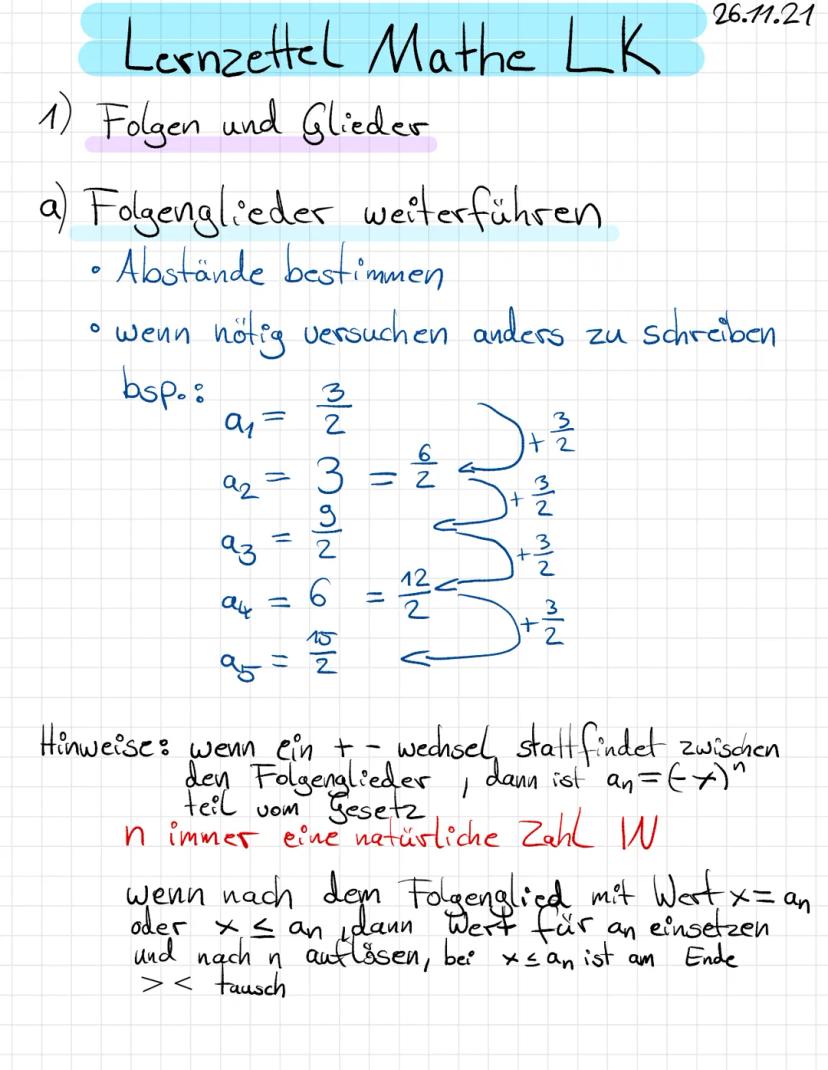 26.11.21
Lernzettel Mathe LK
1) Folgen und Glieder
a) Folgenglieder weiterführen
• Abstände bestimmen
• wenn nötig versuchen anders zu schreiben
bsp.:
a₁ = 3/2
+ 3/2
a₂ = 3 = 6/2
+ 3/2
a₃ = 9/2
+ 3/2
a₄ = 6 = 12/2
+ 3/2
a₅ = 15/2
Hinweise: wenn ein + - wechsel stattfindet zwischen
den Folgenglieder, dann ist aₙ = (-x)ⁿ
teil vom Gesetz
n immer eine natürliche Zahl ℕ
wenn nach dem Folgenglied mit Wert x = aₙ
oder x ≤ aₙ, dann Wert für aₙ einsetzen
und nach n auflösen, bei x ≤ aₙ ist am Ende
> < tausch